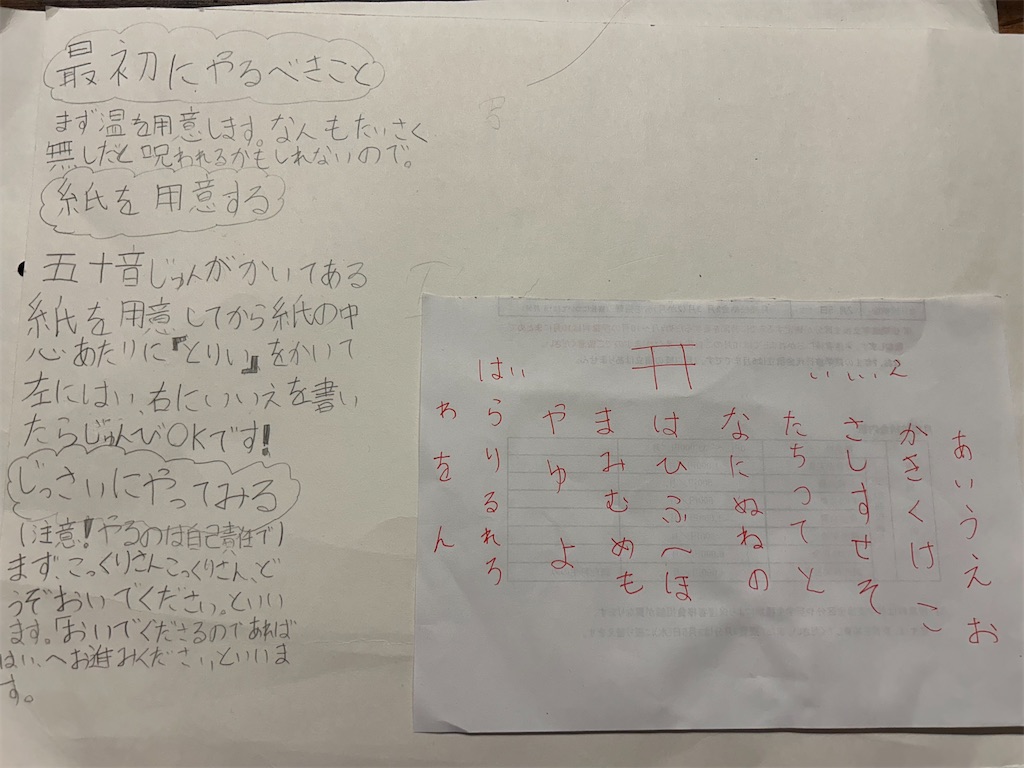 最初にやるべきこと
まず温を用意します。なんもたいさく
無しだと呪われるかもしれないので。
紙を用意する
五十音じゅんがかいてある
紙を用意してから紙の中
心あたりに『とりい』をかいて
左にはい、右にいいえを書い
たらじゅんびOKです!
じっさいにやってみる
(注意!やるのは自己責任で)
まず、こっくりさんこっくりさん、ど
うぞおいでください。といい
ます。「おいでくださるのであれば
はい、へお進みください、といいま
す。
はい
いいえ
あいうえお
かきくけこ
さしすせそ
たちつてと
なにぬねの
はひふへほ
まみむめも
やゆよ
らりるれろ
わをん